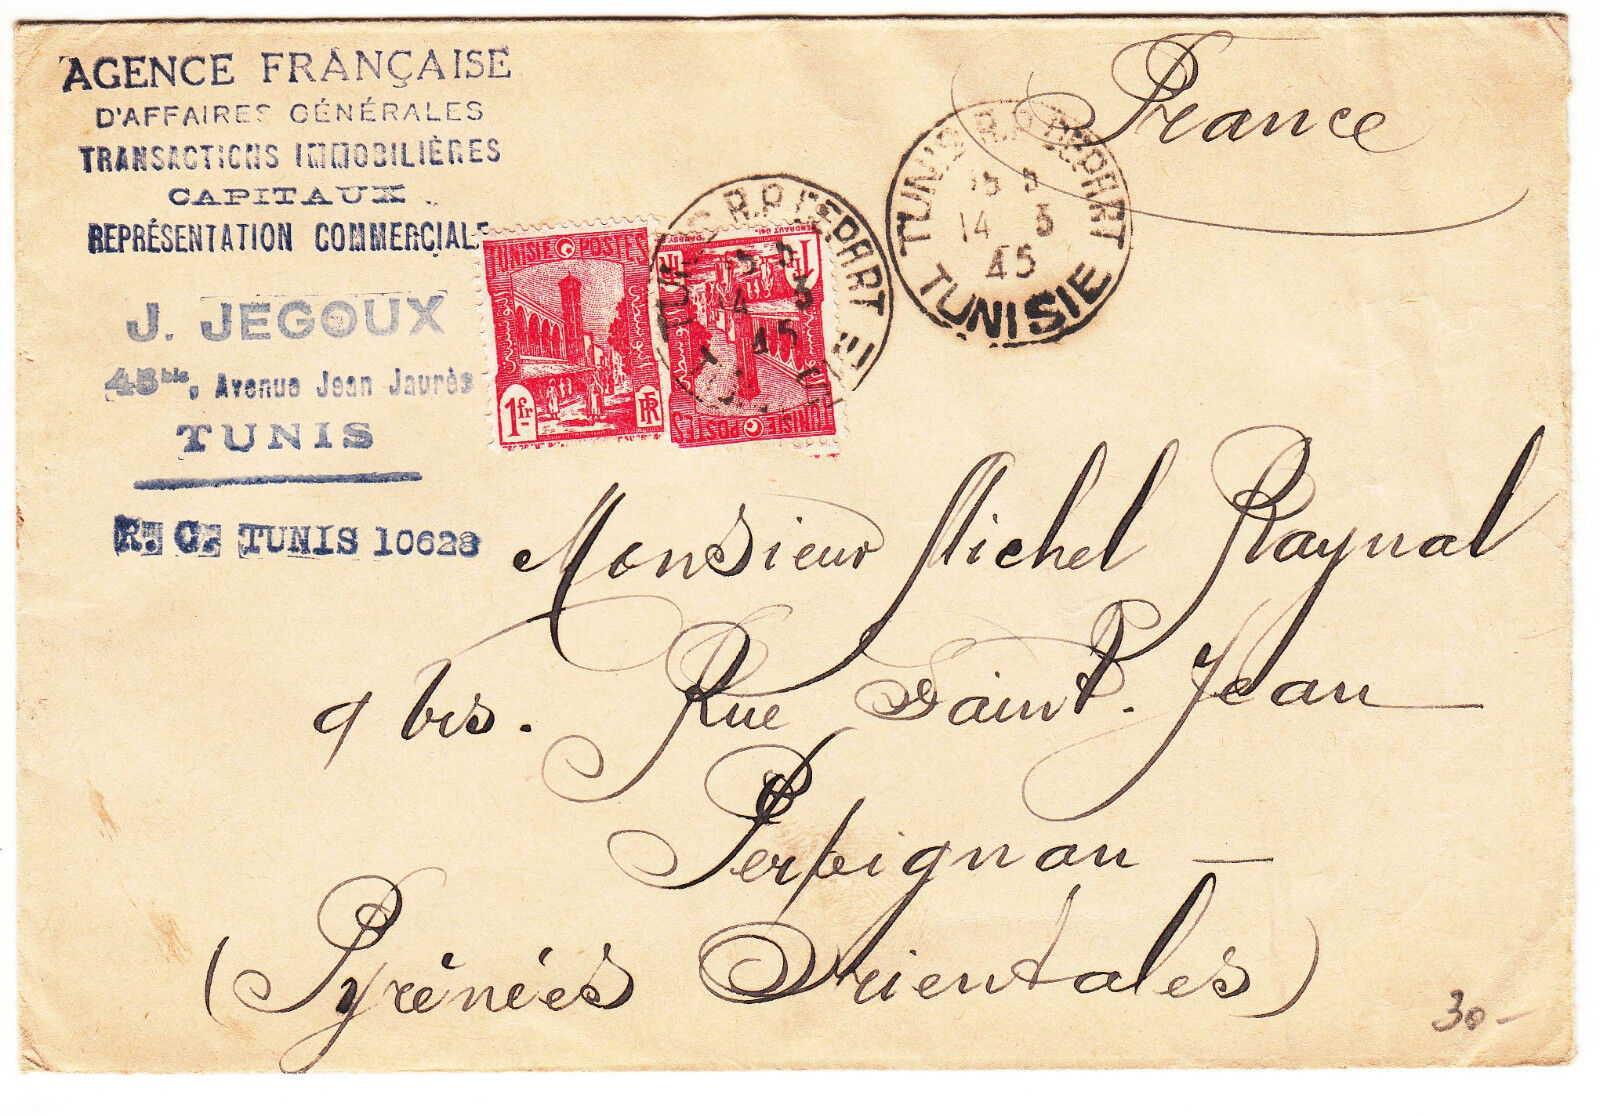 AGENCE FRANÇAISE
D'AFFAIRES GÉNÉRALES
TRANSACTIONS IMMOBILIÈRES
CAPITAUX
REPRÉSENTATION COMMERCIALE
J. JEGOUX
45bis, Avenue Jean Jaurès
TUNIS
R. C. TUNIS 10628
TUNISIE POSTES
1fr
RF
TUNISIE POSTES
1fr
TUNIS R.P. DEPART
14 3
45
TUNIS R.P. DEPART
14 3
45
TUNISIE
France
Monsieur Michel Raynal
9 bis. Rue Saint. Jean
Perpignan —
(Pyrénées Orientales)
30-